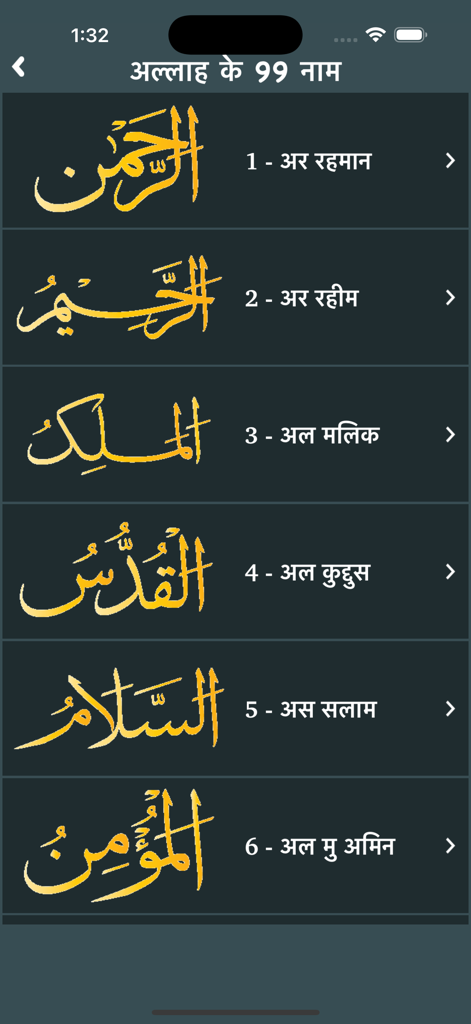 1:32
अल्लाह के 99 नाम
الرَّحْمَٰن
1 - अर रहमान
الرَّحِـيمُ
2 - अर रहीम
المَلِكُ
3 - अल मलिक
الْقُدُّسُ
4 - अल कुद्दुस
السَّلَامُ
5 - अस सलाम
الْمُؤْمِنُ
6 - अल मु अमिन